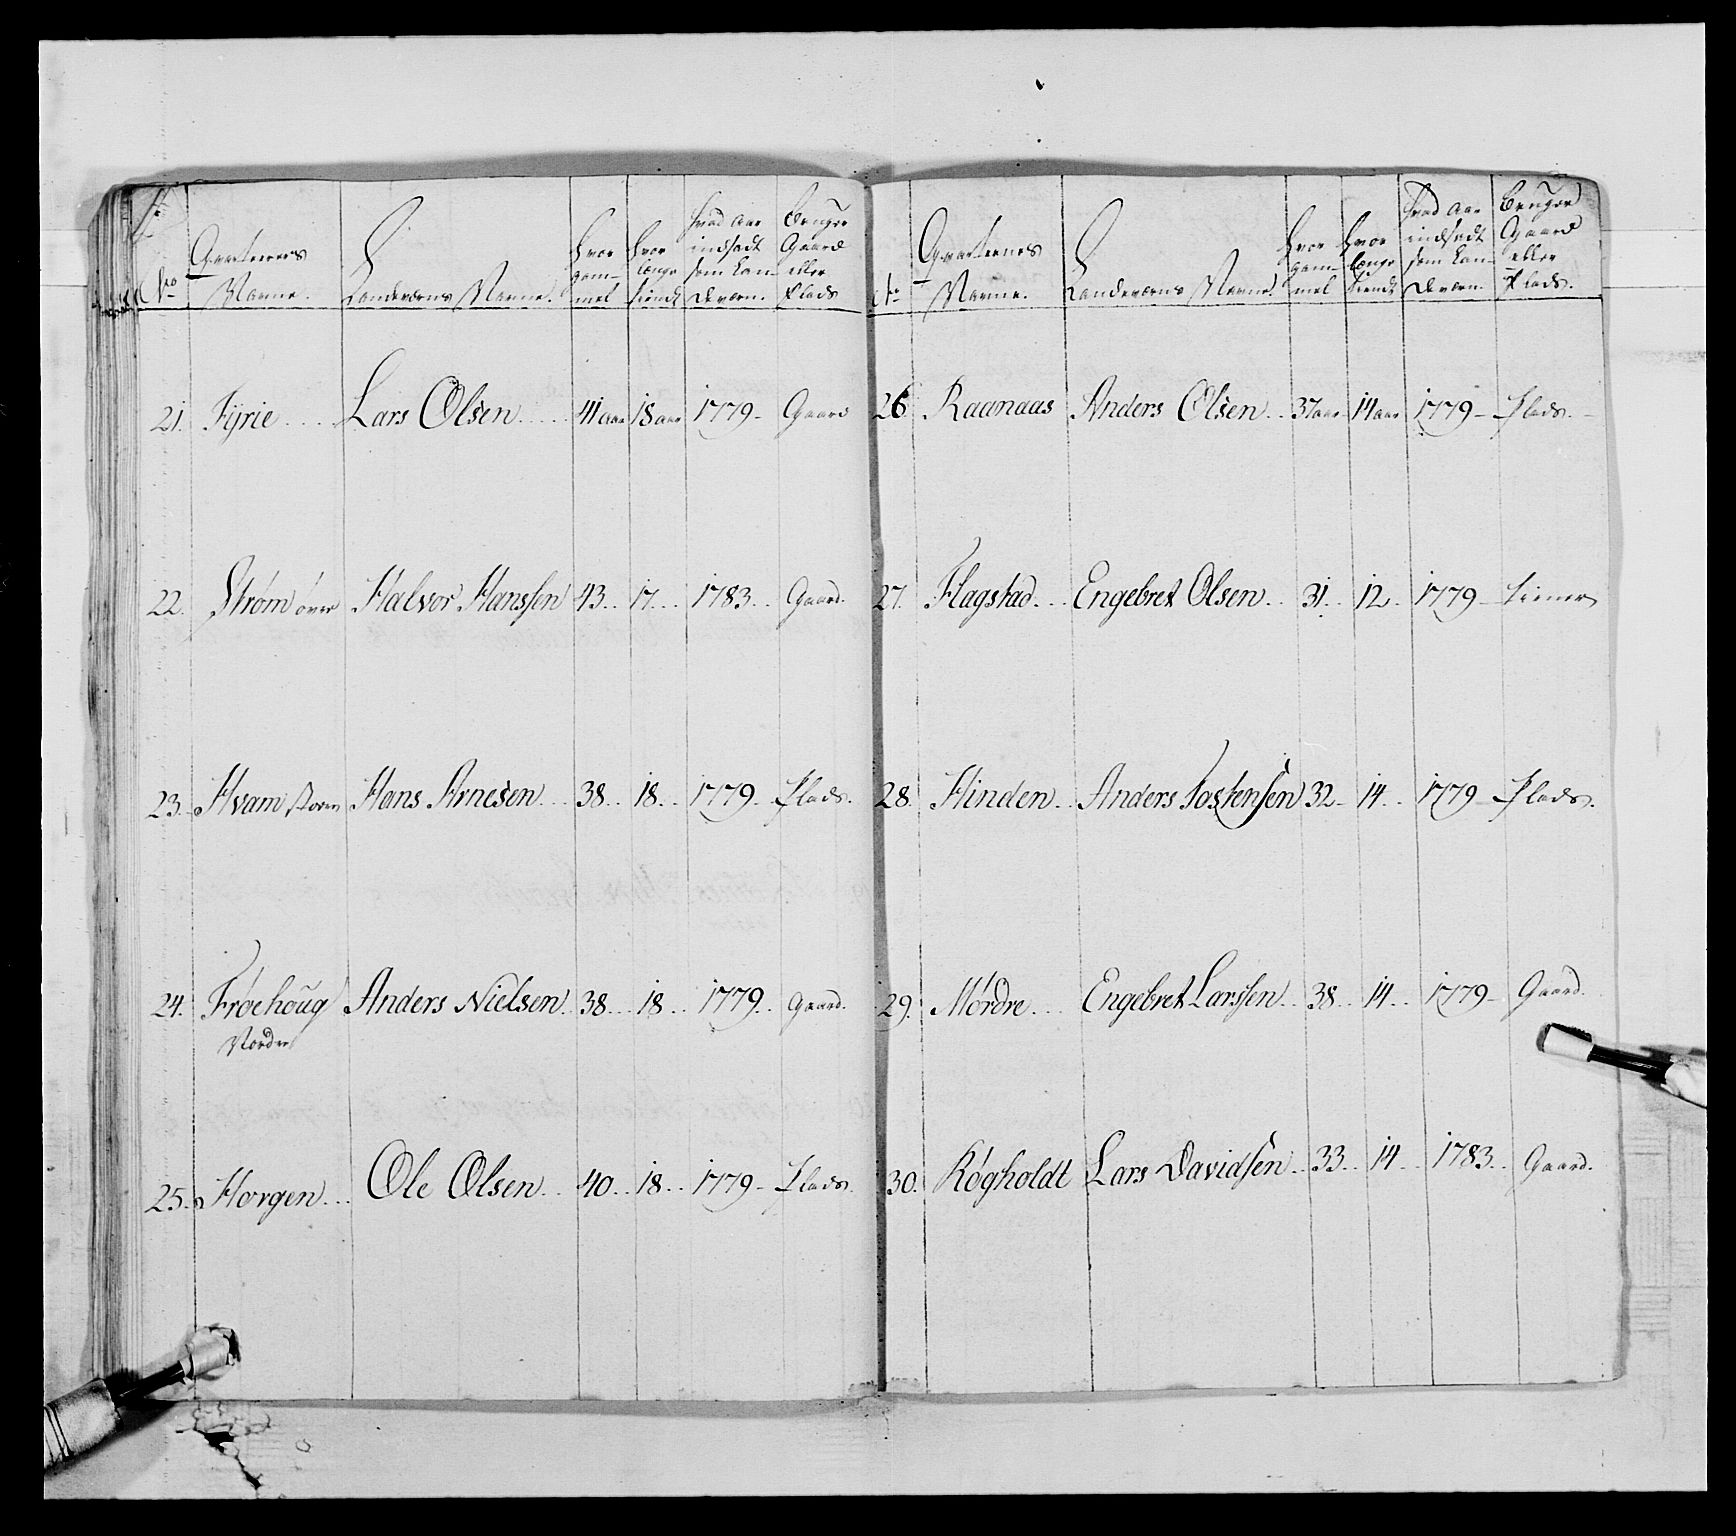 No
Qvarterers
Navne.
Landeværns Navne.
Hvor
gam-
mel
Hvor
længe
tient
Hvad Aar
indsadt
som Lan-
deværn.
Bruger
Gaard
eller
Plads
21. Fÿrie Lars Olsen 41 aar 18 aar 1779 Gaard
22. Strøm øver Halvor Hanssen 43 17 1783 Gaard
23. Hvam Hans Arnesen 38 18 1779 Plads
24. Frøehoug Anders Nielsen 38 18 1779 Gaard
Nordre
25. Horgen Ole Olsen 40 18 1779 Plads
No
Qvarterers
Navne.
Landeværns Navne.
Hvor
gam-
mel
Hvor
længe
tient
Hvad Aar
indsadt
som Lan-
deværn.
Bruger
Gaard
eller
Plads.
26 Raanaas Anders Olsen 37 aar 14 aar 1779 Plads
27. Flagstad Engebret Olsen 31 12 1779 tiener
28. Hinden Anders Tostensen 32 14 1779 Plads.
29. Mørdre Engebret Larssen 38 14 1779 Gaard
30. Røgholdt Lars Davidsen 33 14 1783 Gaard.